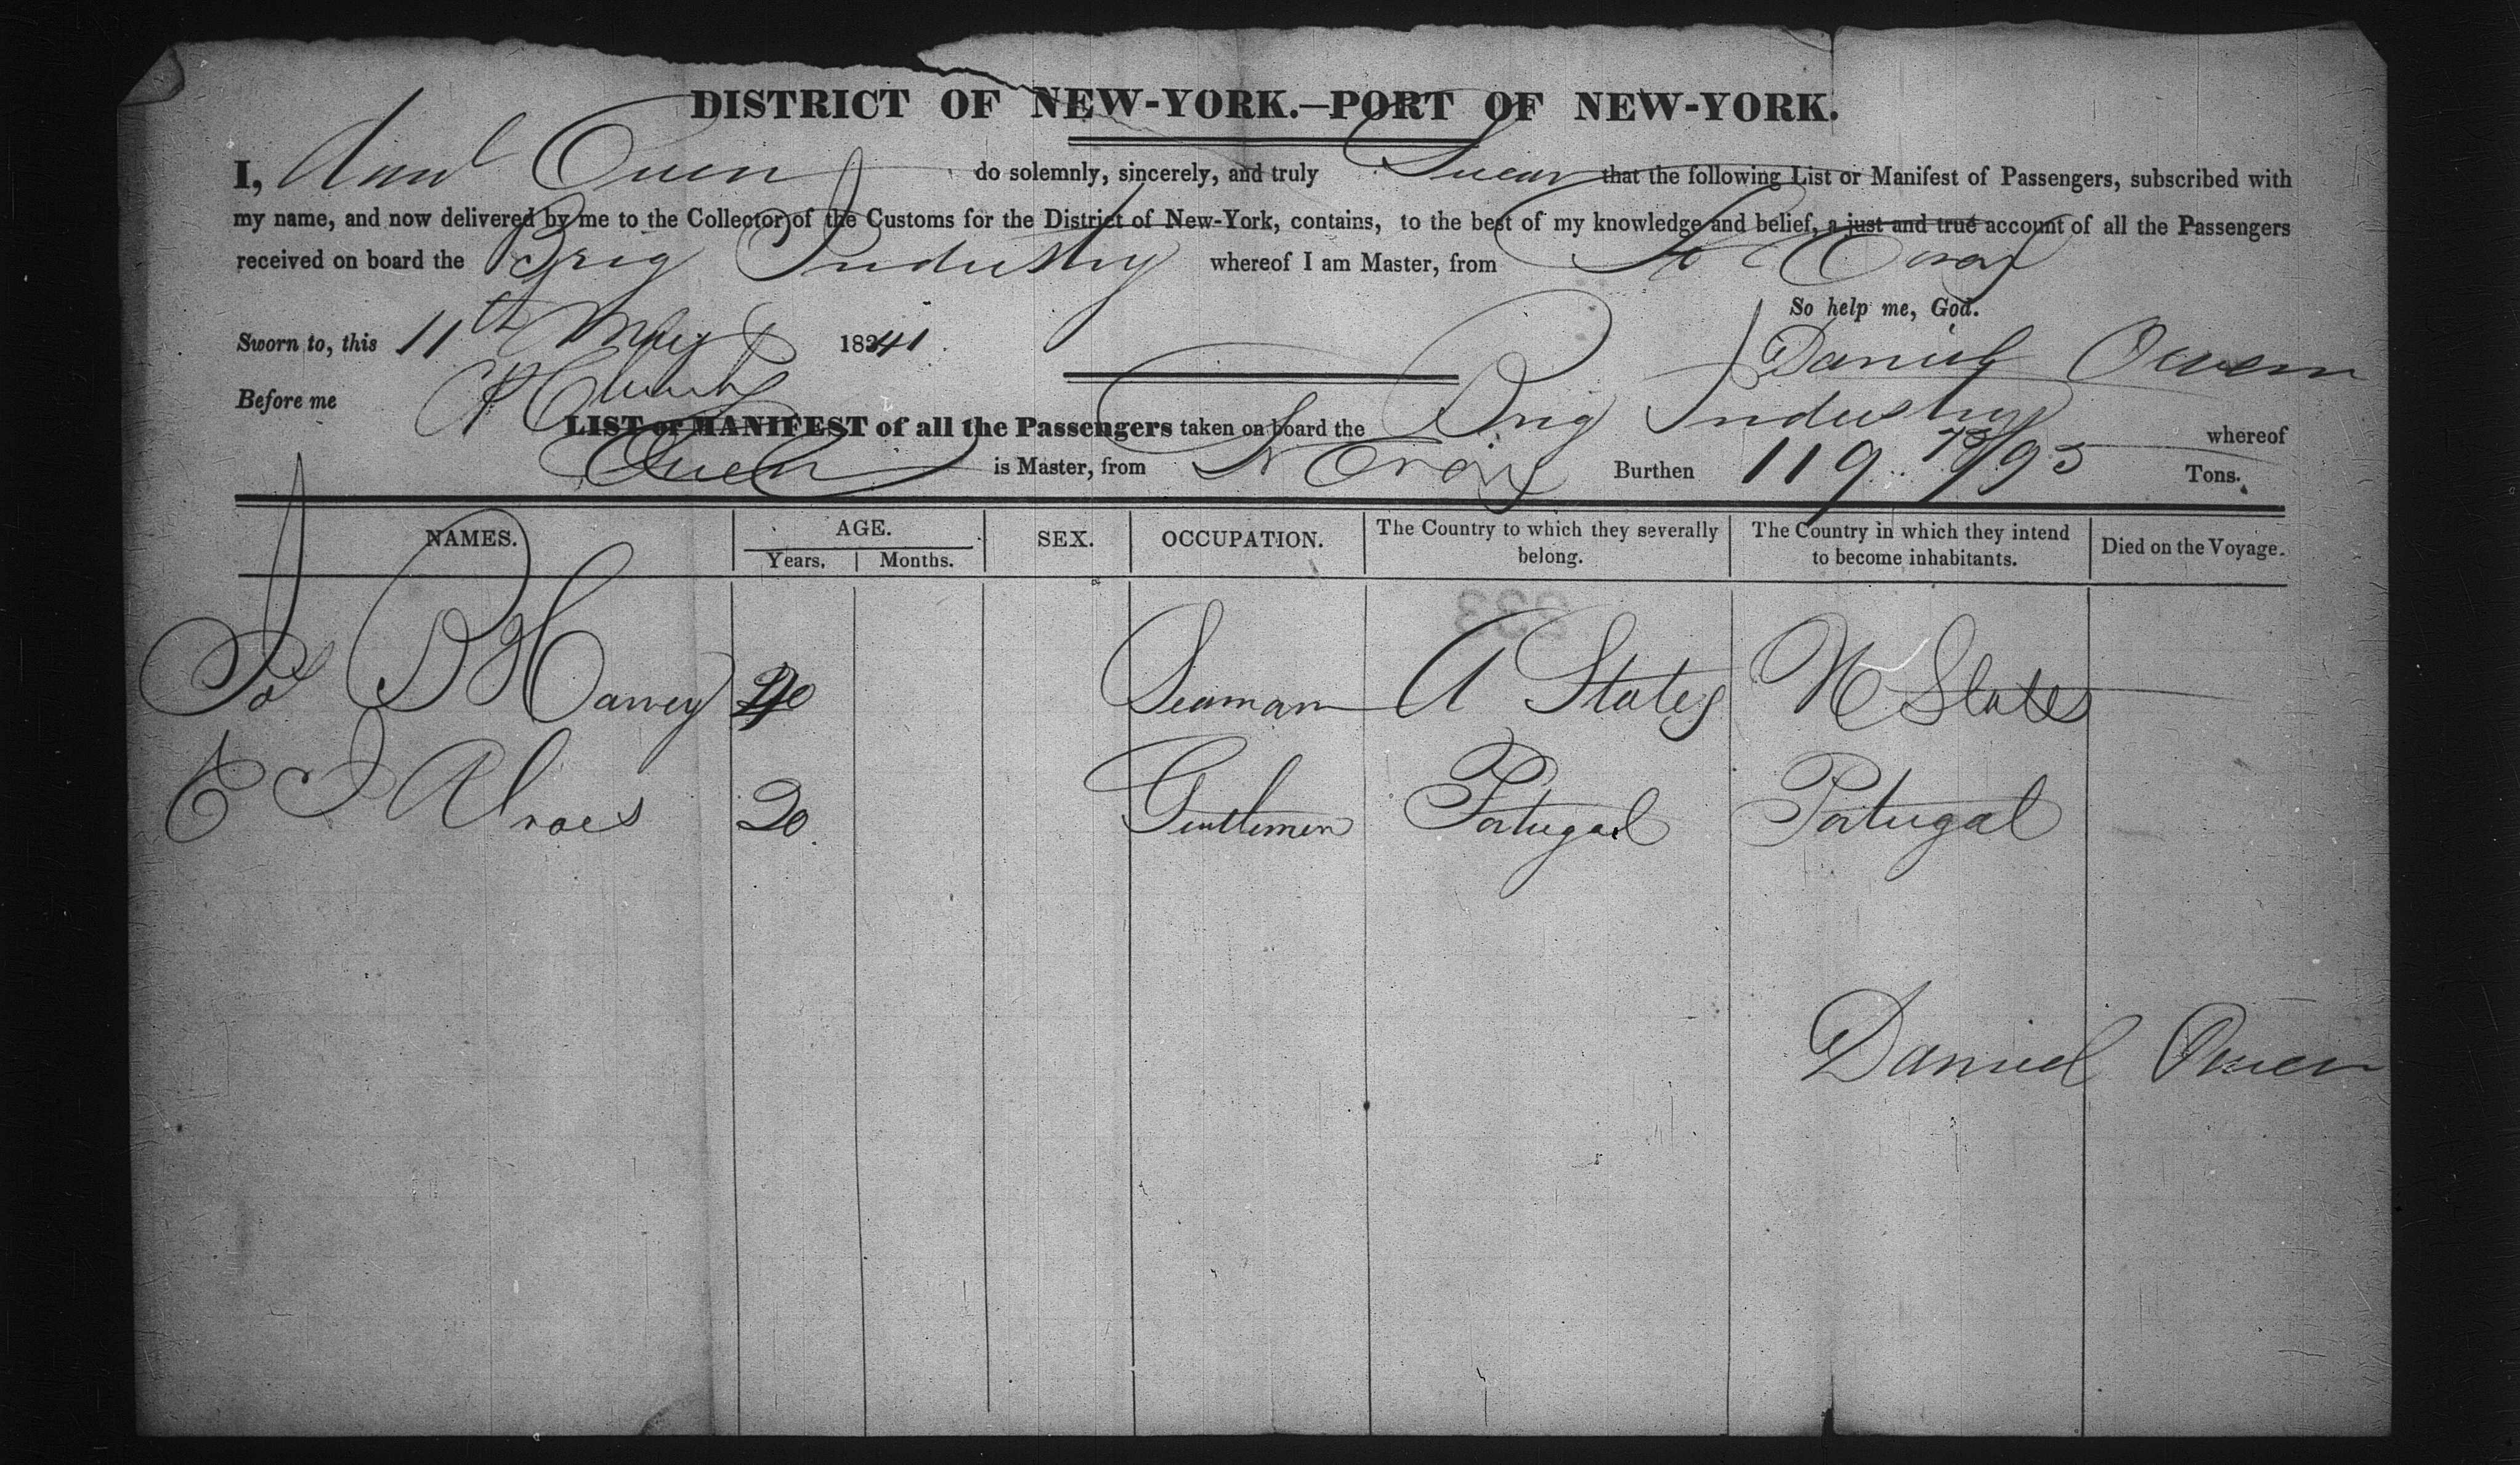 DISTRICT OF NEW-YORK.—PORT OF NEW-YORK.
I, Danl Owen do solemnly, sincerely, and truly Swear that the following List or Manifest of Passengers, subscribed with
my name, and now delivered by me to the Collector of the Customs for the District of New-York, contains, to the best of my knowledge and belief, a just and true account of all the Passengers
received on board the Brig Industry whereof I am Master, from St Croix
So help me, God.
Sworn to, this 11th May 1841 Daniel Owen
Before me
LIST or MANIFEST of all the Passengers taken on board the Brig Industry whereof
Owen is Master, from St Croix Burthen 119 73/95 Tons.
NAMES. AGE. SEX. OCCUPATION. The Country to which they severally belong. The Country in which they intend to become inhabitants. Died on the Voyage.
Years. Months.
B Harvey Seaman U States U States
E J Alvaes 20 Gentlemen Portugal Portugal
Daniel Owen